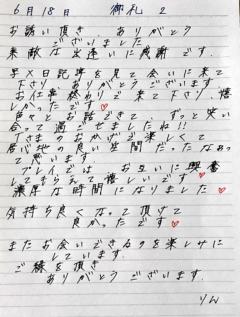 6月18日 御礼 2
お誘い頂き ありがとう
ございました
素敵な出逢いに感謝です.
写メ日記等を見て会いに来て
下さり、ありがとうございます
お仕事終わりで来て下さり、嬉
しかったです♡
色々とお話できて、ずっと笑い
合って過ごせましたね!!
Tさまのおかげで楽しくて
居心地の良い空間だったなぁっ
て思います
プレイでは お互いに興奮
してもらえて嬉しいです♡
濃厚な時間になりました♡
気持ち良くなって頂けて
良かったです♡
またお会いできるのを楽しみに
しています.
ご縁を頂き
ありがとうございます.
りん